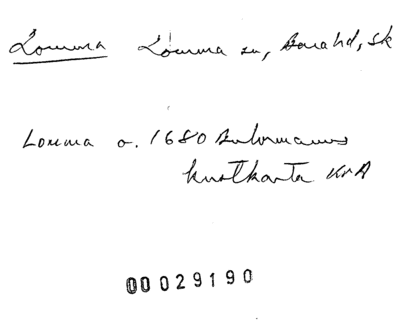 Lomma Lomma sn, Bara hd, Sk
Lomma o. 1680 Buhrmanns
kustkarta KrA
00029190